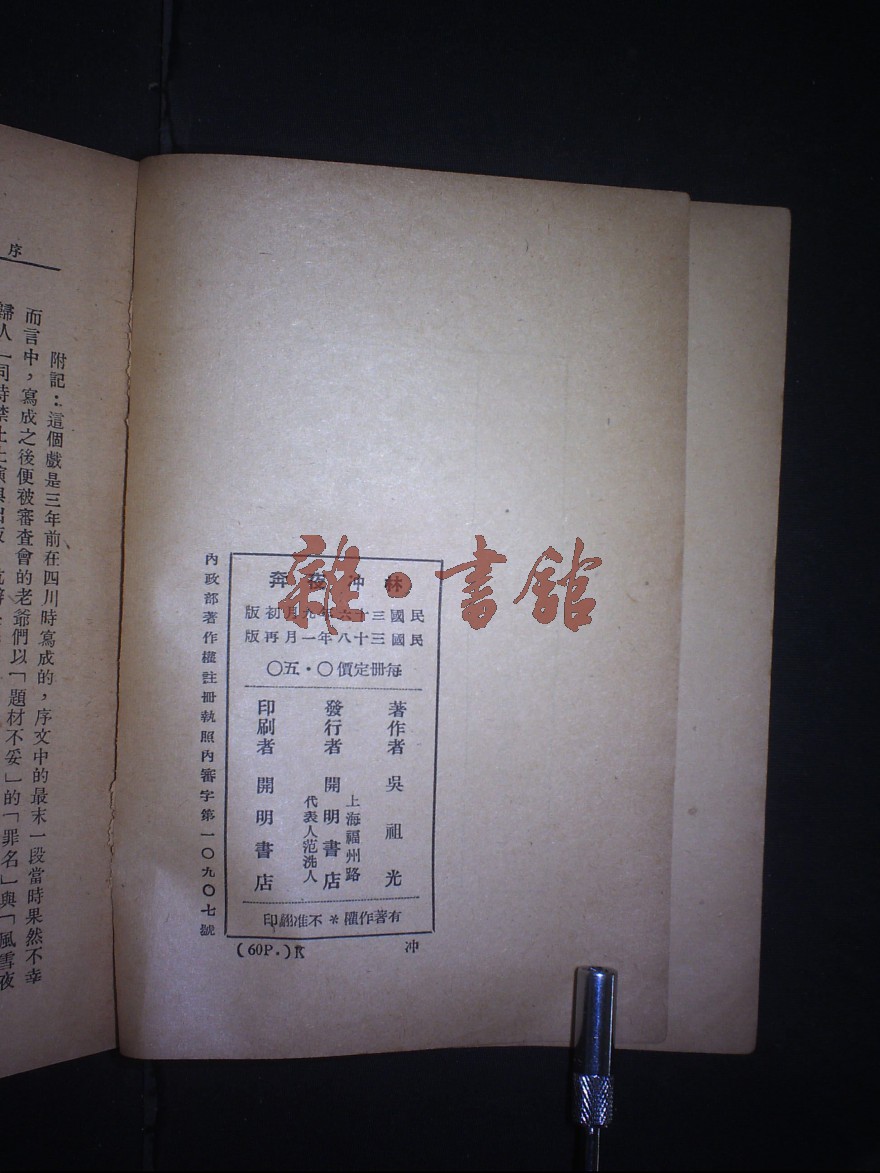 林冲夜奔
民國三十六年九月初版
民國三十八年一月再版
每冊定價〇・五〇
著作者 吳祖光
發行者 開明書店
上海福州路
代表人范洗人
印刷者 開明書店
有著作權＊不准翻印
內政部著作權註冊執照內審字第一〇九〇七號
(60P.)K
冲
序
附記：這個戲是三年前在四川時寫成的，序文中的最末一段當時果然不幸
而言中，寫成之後便被審查會的老爺們以「題材不妥」的「罪名」與「風雪夜
歸人」同時禁止上演與出版
雜・書館